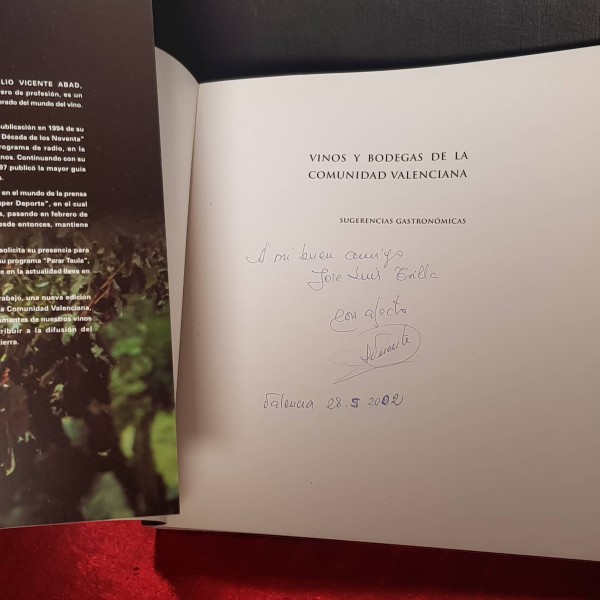 LIO VICENTE ABAD,
ero de profesión, es un
orado del mundo del vino.
ublicación en 1994 de su
Década de los Noventa"
rograma de radio, en la
nos. Continuando con su
97 publicó la mayor guía
en el mundo de la prensa
per Deporte", en el cual
s, pasando en febrero de
esde entonces, mantiene
solicita su presencia para
su programa "Parar Taula",
e en la actualidad lleva en
rabajo, una nueva edición
a Comunidad Valenciana,
amentos de nuestros vinos
tribuir a la difusión del
ierra.
VINOS Y BODEGAS DE LA
COMUNIDAD VALENCIANA
SUGERENCIAS GASTRONÓMICAS
A mi buen amigo
Jose Luis Trilla
Con afecto
Vicente
Valencia 28.5.2002